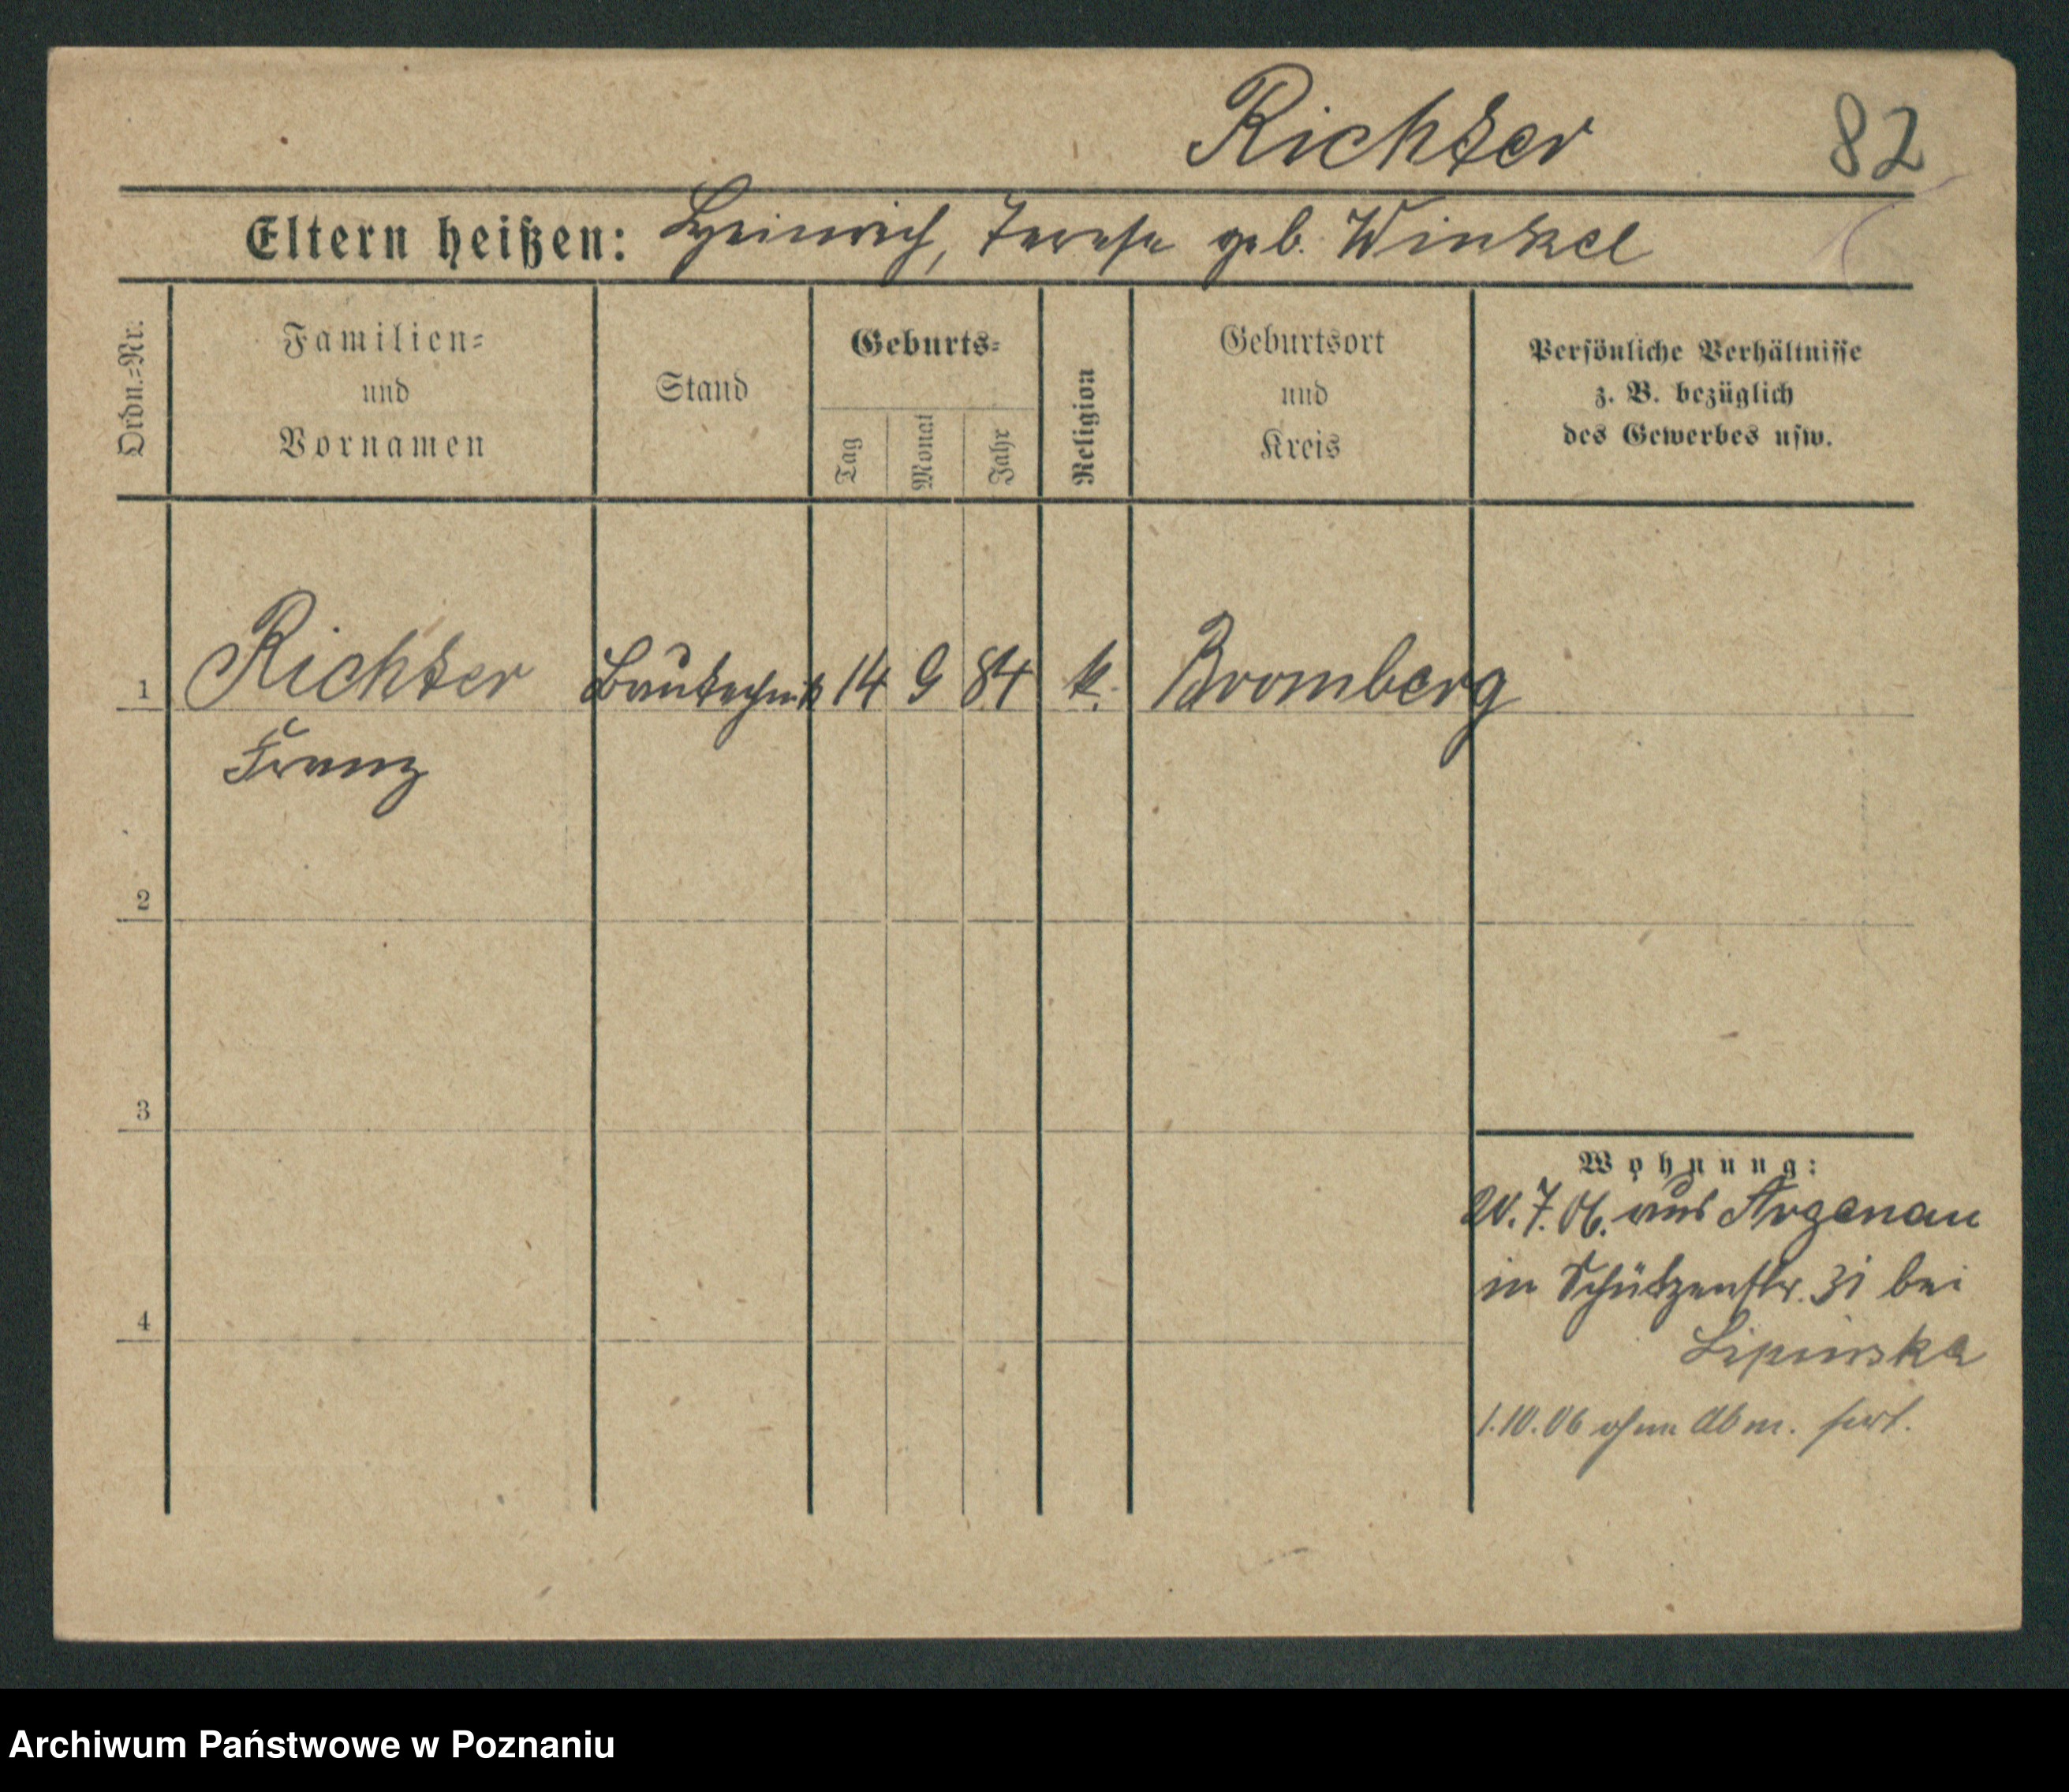 Richter 82
Eltern heißen: Heinrich, Terese geb. Winkel
Ordn.-Nr.
Familien-
und
Vornamen
Stand
Geburts-
Tag
Monat
Jahr
Religion
Geburtsort
und
Kreis
Persönliche Verhältnisse
z. B. bezüglich
des Gewerbes usw.
1 Richter Bautechnik 14 9 84 k. Bromberg
Franz
2
3
4
Wohnung:
20.7.06. aus Argenau
in Schützenstr. 31 bei
Lipinska
1.10.06 ohne Abm. fort.
Archiwum Państwowe w Poznaniu